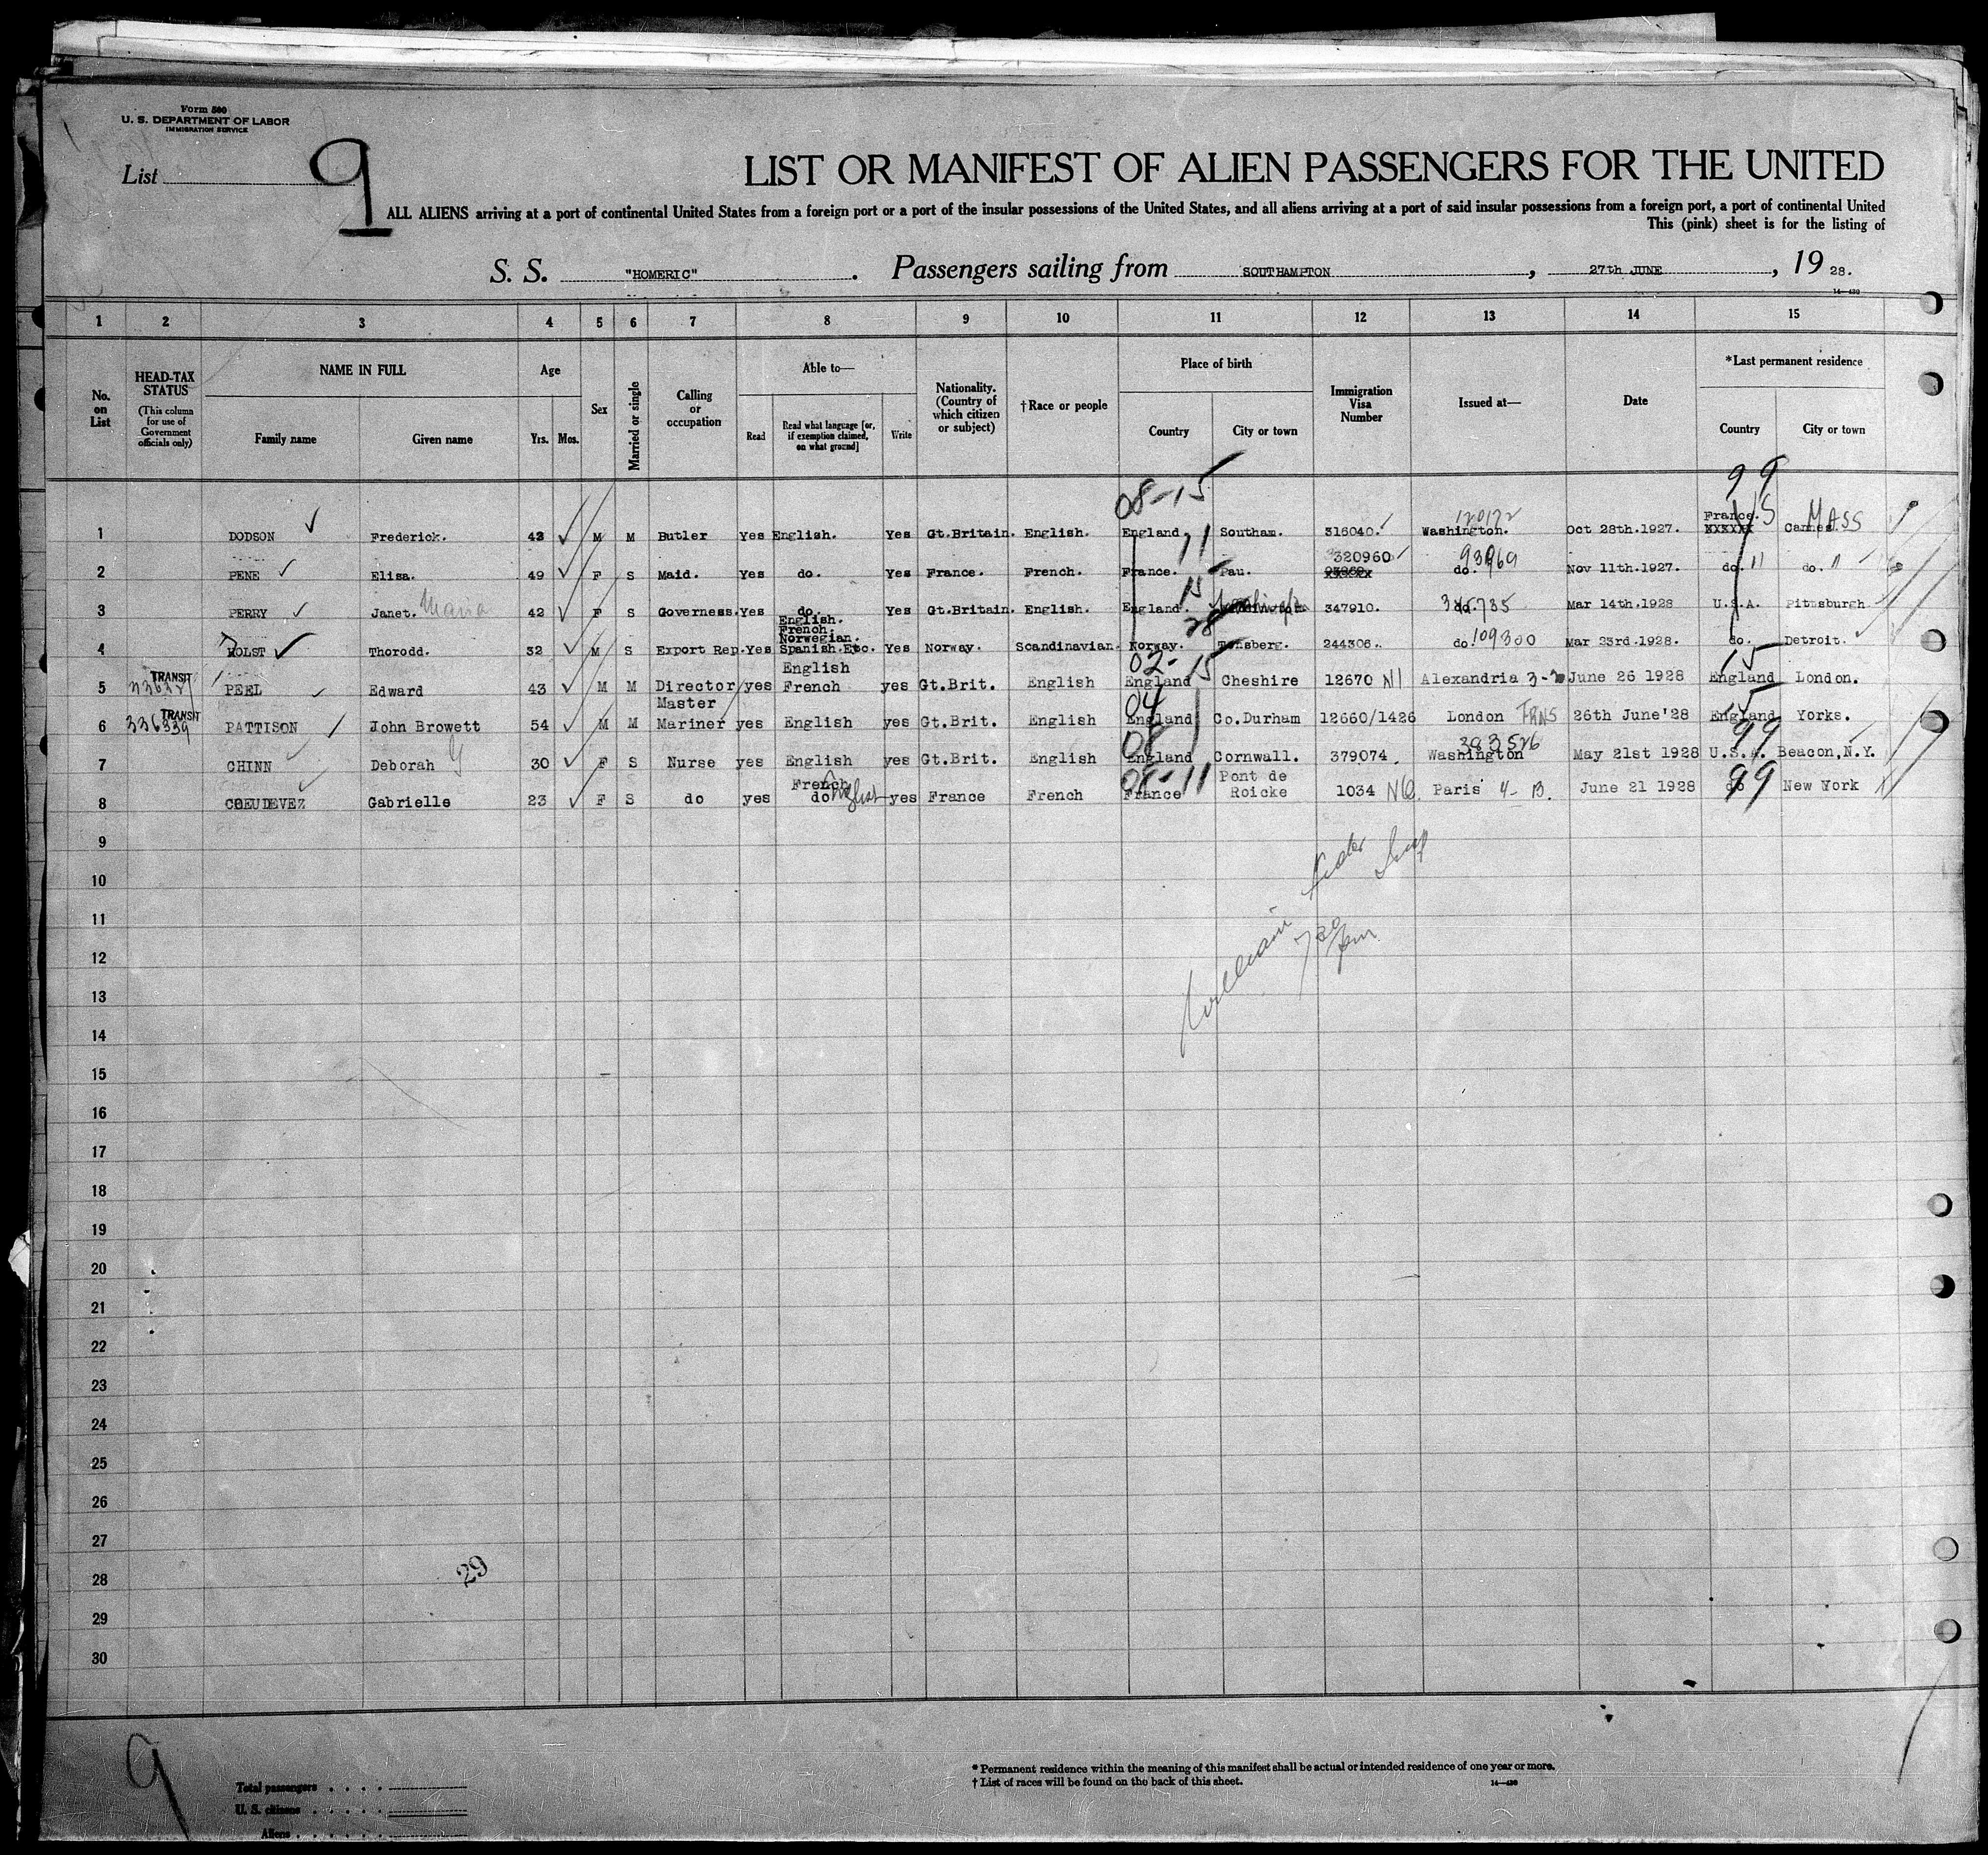 Form 500
U. S. DEPARTMENT OF LABOR
IMMIGRATION SERVICE
List 9
LIST OR MANIFEST OF ALIEN PASSENGERS FOR THE UNITED
ALL ALIENS arriving at a port of continental United States from a foreign port or a port of the insular possessions of the United States, and all aliens arriving at a port of said insular possessions from a foreign port, a port of continental United
This (pink) sheet is for the listing of
S. S. "HOMERIC". Passengers sailing from SOUTHAMPTON, 27th JUNE, 19 28.
14—430
1 2 3 4 5 6 7 8 9 10 11 12 13 14 15
No. on List
HEAD-TAX STATUS
(This column for use of Government officials only)
NAME IN FULL
Family name Given name
Age
Yrs. Mos.
Sex
Married or single
Calling or occupation
Able to—
Read Read what language [or, if exemption claimed, on what ground] Write
Nationality. (Country of which citizen or subject)
†Race or people
Place of birth
Country City or town
Immigration Visa Number
Issued at—
Date
*Last permanent residence
Country City or town
08-15 99
1 DODSON Frederick. 43 M M Butler Yes English. Yes Gt.Britain. English. England Southam. 316040. 120172 Washington. Oct 28th.1927. France. XXXXXX 15 Cannes. MASS
2 PENE Elisa. 49 F S Maid. Yes do. Yes France. French. France. 11 Pau. 320960 do. 93969 Nov 11th.1927. do. 11 do. 11
3 PERRY Janet. Maria 42 F S Governess. Yes do. Yes Gt.Britain. English. England. 15 347910. do. 346735 Mar 14th.1928 U.S.A. Pittsburgh
4 HOLST Thorodd. 32 M S Export Rep. Yes English. French. Norwegian. Spanish.Etc. Yes Norway. Scandinavian. Norway. 28 Tonsberg. 244306. do. 109300 Mar 23rd.1928. do. Detroit.
5 TRANSIT PEEL Edward 43 M M Director yes English French yes Gt.Brit. English 02-15 England Cheshire 12670 NI Alexandria 3-2 June 26 1928 15 England London.
6 TRANSIT 336339 PATTISON John Browett 54 M M Master Mariner yes English yes Gt.Brit. English 04 England Co.Durham 12660/1426 London TRNS 26th June'28 15 England Yorks.
7 CHINN Deborah G 30 F S Nurse yes English yes Gt.Brit. English 08 England Cornwall. 379074. 383526 Washington May 21st 1928 99 U.S.A. Beacon,N.Y.
8 COEUDEVEZ Gabrielle 23 F S do yes French do English yes France French 08-11 France Pont de Roicke 1034 NQ. Paris 4-B. June 21 1928 99 do New York
9
10
11
12
William
7 30 pm
13
14
15
16
17
18
19
20
21
22
23
24
25
26
27
28 29
29
30
9
Total passengers
U. S. citizens
Aliens
* Permanent residence within the meaning of this manifest shall be actual or intended residence of one year or more.
† List of races will be found on the back of this sheet.
14—430